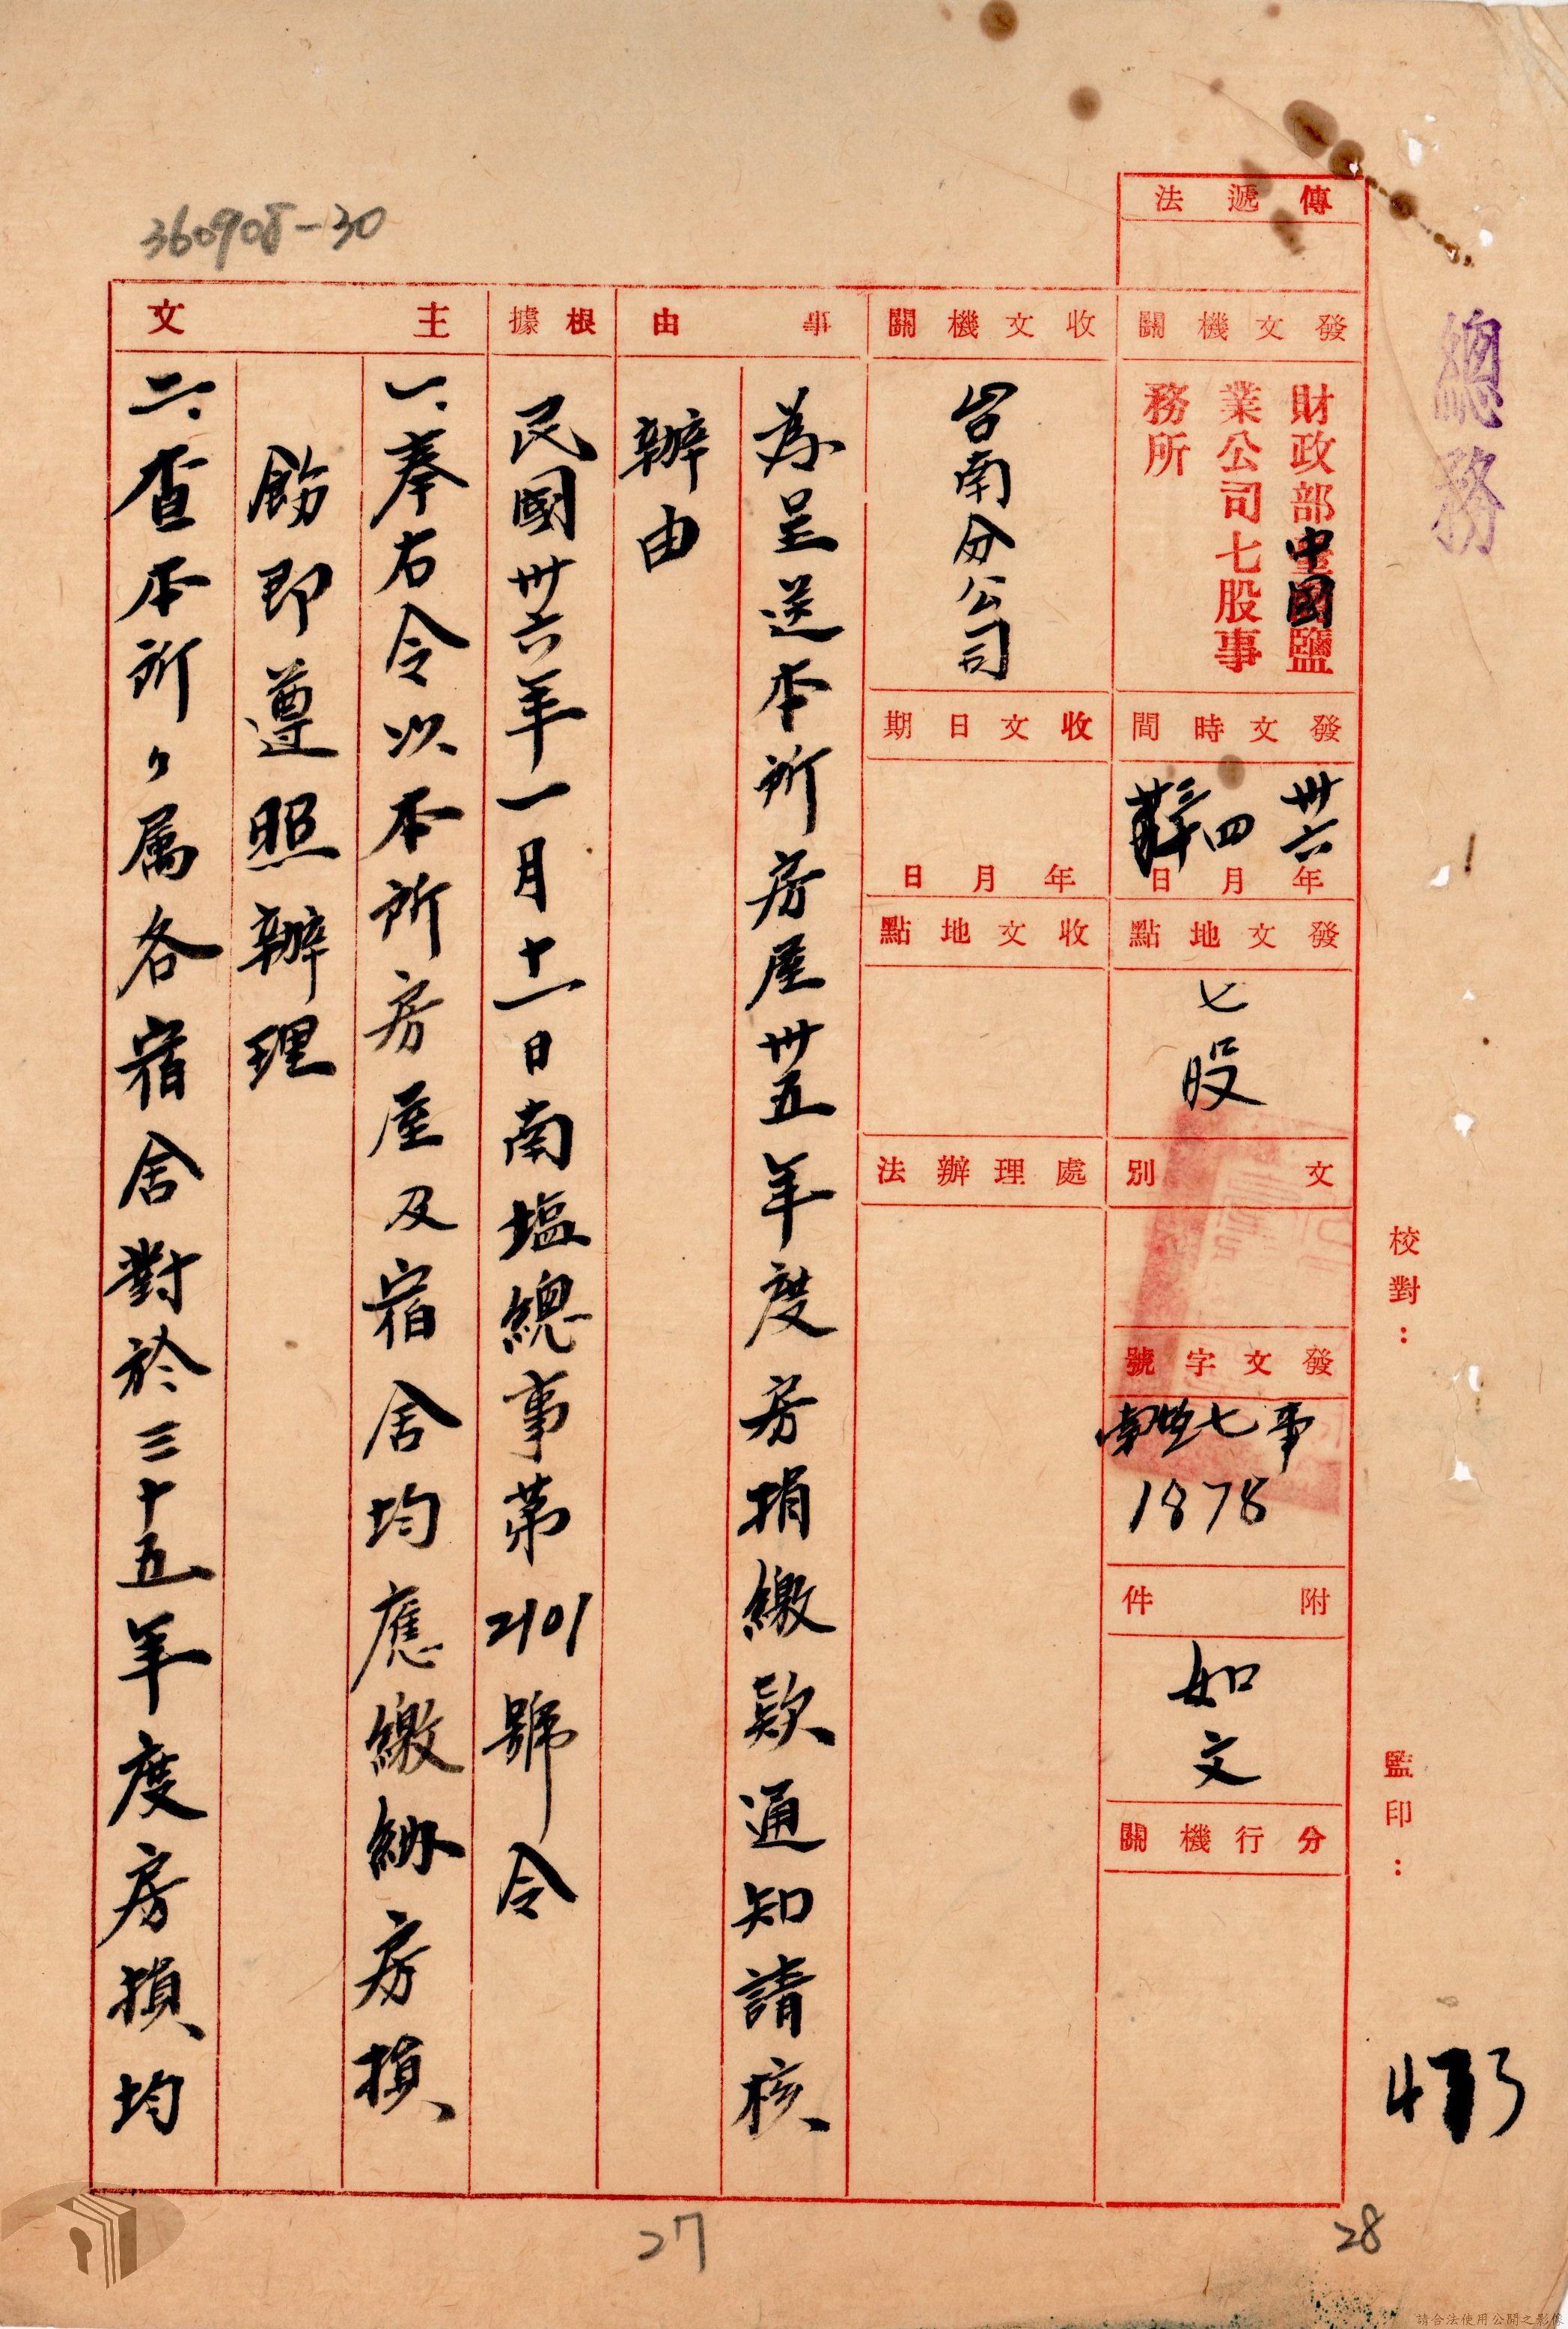 總務
校對：
監印：
傳遞法
發文機關
財政部中國鹽
業公司七股事
務所
發文時間
卅六年四月日
發文地點
七股
文別
發文字號
南鹽七事
1878
附件
如文
分行機關
收文機關
台南分公司
收文日期
年月日
收文地點
處理辦法
事由
為呈送本所房屋卅五年度房捐繳款通知請核
辦由
根據
民國卅六年一月十一日南塩總事第2101號令
主文
一、奉右令以本所房屋及宿舍均應繳納房損
飭即遵照辦理
二、查本所々属各宿舍對於三十五年度房損均
360908-30
27
28
請合法使用公開之影像